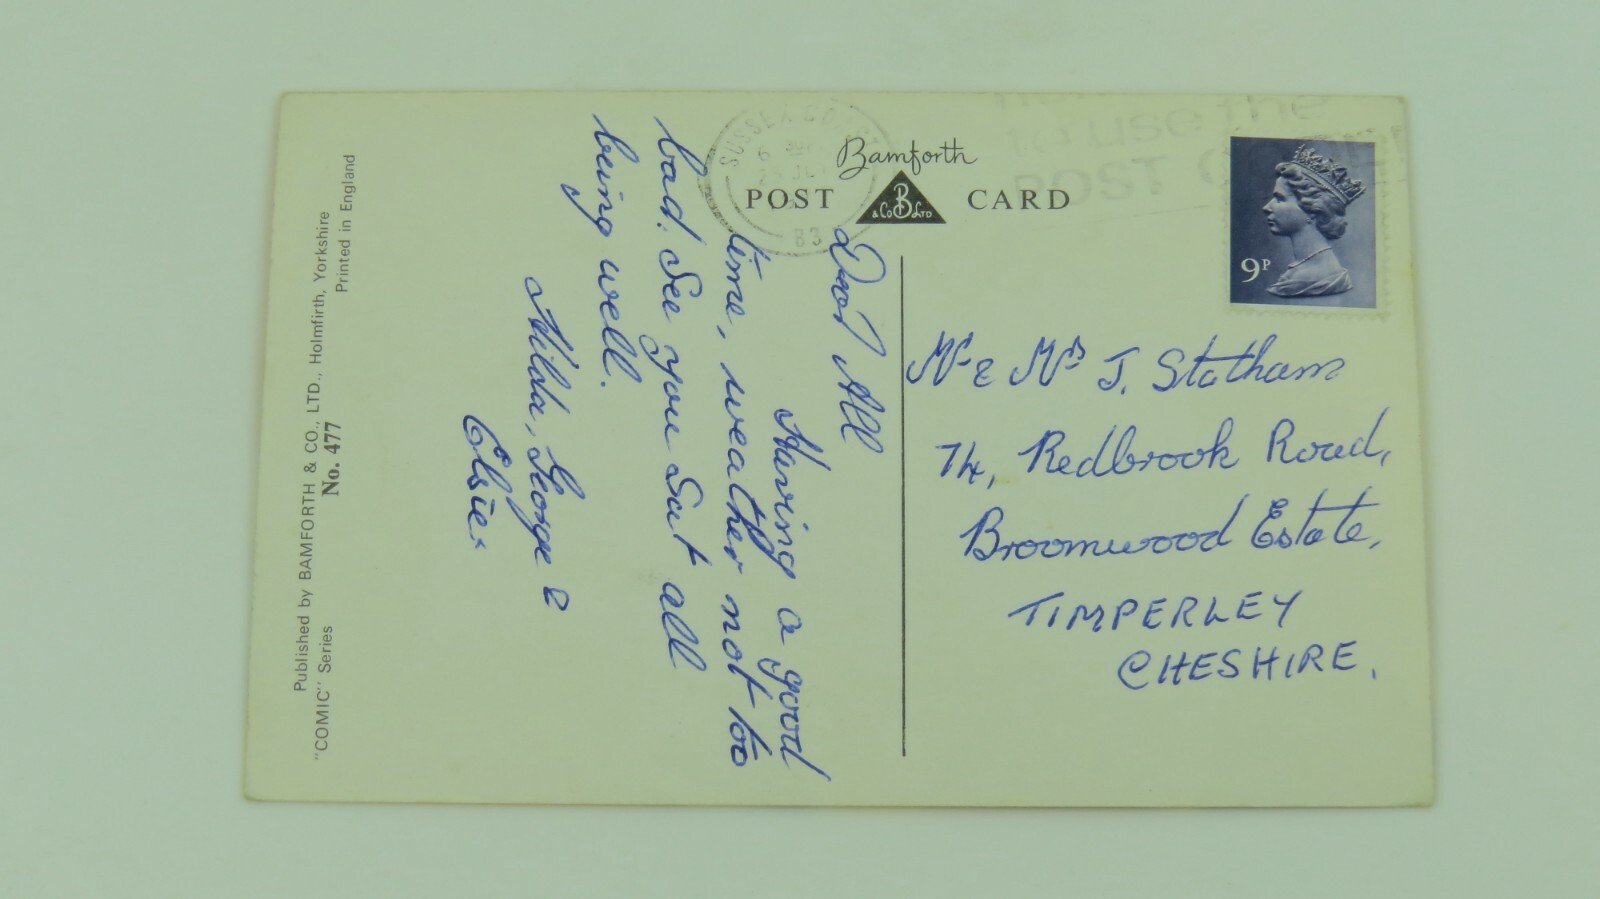 Published by BAMFORTH & CO., LTD., Holmfirth, Yorkshire
"COMIC" Series No. 477 Printed in England
SUSSEX
83
to use the
POST
Bamforth
POST CARD
B
& Co Ltd
9P
Dear All
Having a good
time, weather not too
bad. See you Sat all
being well.
Hilda, George &
Elsie x
Mr & Mrs J. Statham
74, Redbrook Road,
Broomwood Estate,
TIMPERLEY
CHESHIRE.